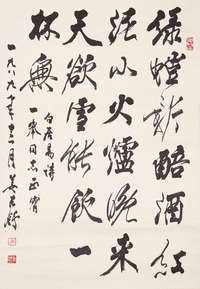 綠螘新醅酒紅
泥小火爐晚来
天欲雪能飲一
杯無
白居易詩
同志正
一九八九年十二月姜東舒